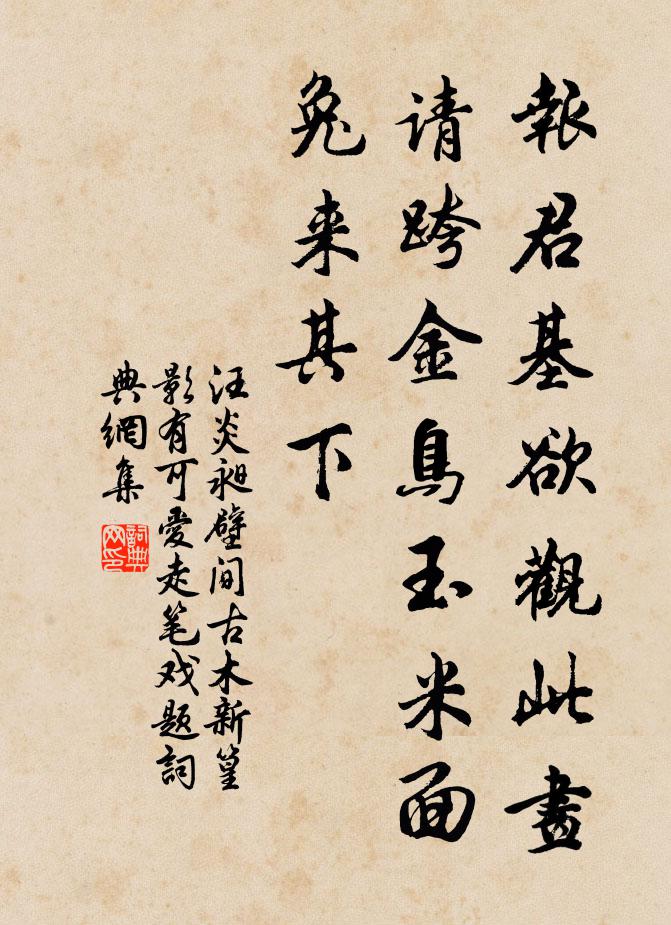 報君基欲觀此畫
请跨金鳥玉米面
兔来其下
汪炎昶壁间古木新篁
影有可愛走笔戏题詞
典網集
詞典
网印